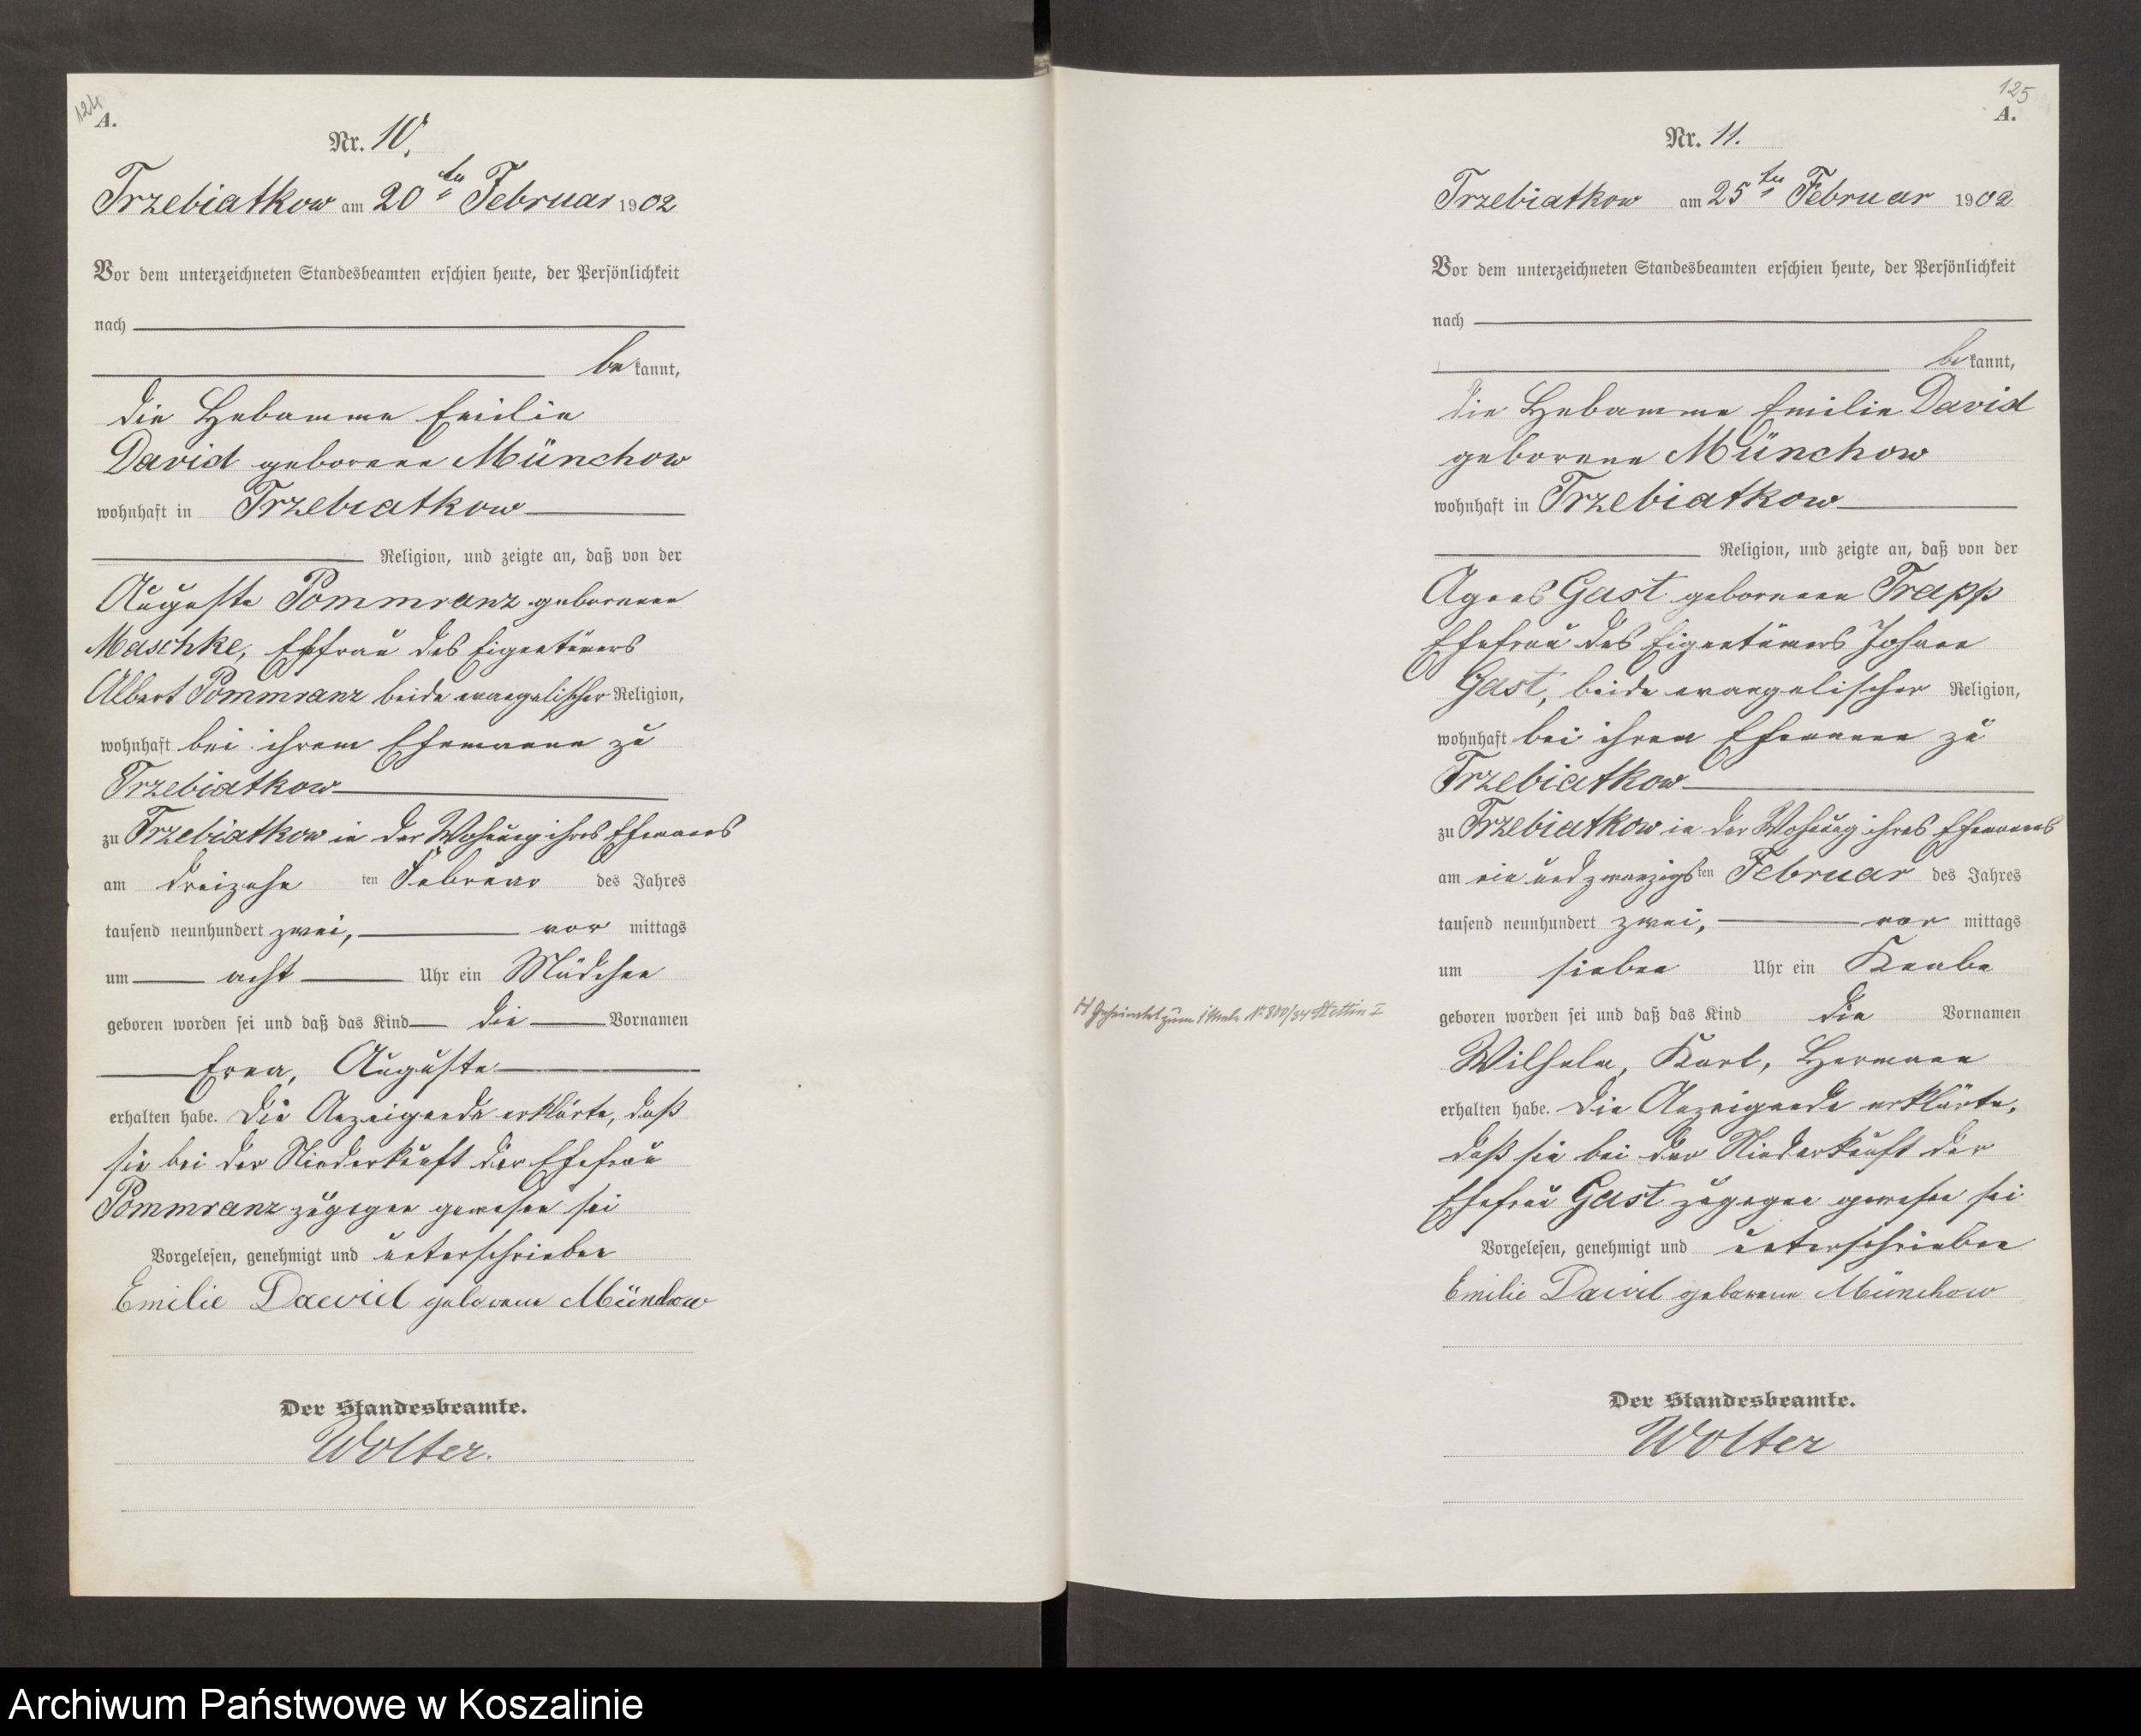 124
A.
Nr. 10.
Trzebiatkow am 20ten Februar 1902
Vor dem unterzeichneten Standesbeamten erschien heute, der Persönlichkeit
nach
be kannt,
die Hebamme Emilie
David geborene Münchow
wohnhaft in Trzebiatkow
Religion, und zeigte an, daß von der
Auguste Pommranz geborenen
Maschke, Ehfrau des Eigentümers
Albert Pommranz beide evangelischer Religion,
wohnhaft bei ihrem Ehemanne zu
Trzebiatkow
zu Trzebiatkow in der Wohnung ihres Ehemanns
am dreizehn ten Februar des Jahres
tausend neunhundert zwei, vor mittags
um acht Uhr ein Mädchen
geboren worden sei und daß das Kind die Vornamen
Erna, Auguste
erhalten habe. Die Anzeigende erklärte, daß
sie bei der Niederkunft der Ehefrau
Pommranz zugegen gewesen sei
Vorgelesen, genehmigt und unterschrieben
Emilie David geborene Münchow
Der Standesbeamte.
Wolter.
125
A.
Nr. 11.
Trzebiatkow am 25ten Februar 1902
Vor dem unterzeichneten Standesbeamten erschien heute, der Persönlichkeit
nach
be kannt,
die Hebamme Emilie David
geborene Münchow
wohnhaft in Trzebiatkow
Religion, und zeigte an, daß von der
Agnes Gast geborenen Trapp
Ehefrau des Eigentümers Johann
Gast, beide evangelischer Religion,
wohnhaft bei ihrem Ehemanne zu
Trzebiatkow
zu Trzebiatkow in der Wohnung ihres Ehemannes
am ein und zwanzigs ten Februar des Jahres
tausend neunhundert zwei, vor mittags
um sieben Uhr ein Knabe
H Geheiratet zum 1 Male Nr. 800/34 Stettin I
geboren worden sei und daß das Kind die Vornamen
Wilhelm, Karl, Hermann
erhalten habe. Die Anzeigende erklärte,
daß sie bei der Niederkunft der
Ehefrau Gast zugegen gewesen sei
Vorgelesen, genehmigt und unterschrieben
Emilie David geborene Münchow
Der Standesbeamte.
Wolter
Archiwum Państwowe w Koszalinie